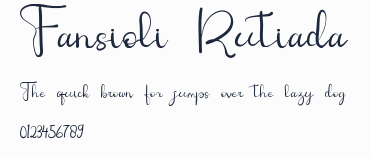 Fansioli Rutiada
The quick brown for jumps over the lazy dog
0123456789